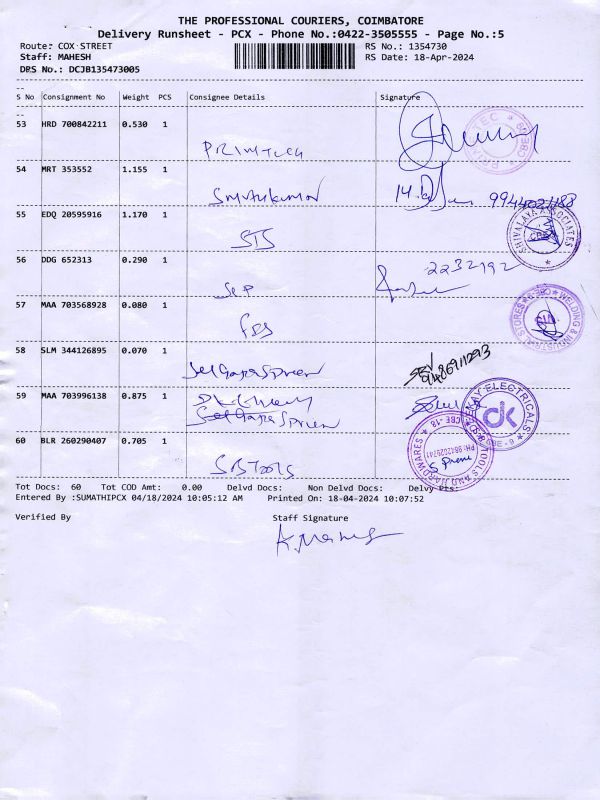 THE PROFESSIONAL COURIERS, COIMBATORE
Delivery Runsheet - PCX - Phone No.:0422-3505555 - Page No.:5
Route: COX STREET RS No.: 1354730
Staff: MAHESH RS Date: 18-Apr-2024
DRS No.: DCJB135473005
S No Consignment No Weight PCS Consignee Details Signature
53 HRD 700842211 0.530 1
PRIMTECH
54 MRT 353552 1.155 1
Smuthukumar 9944021188
55 EDQ 20595916 1.170 1
STS
SHIVALAYA ASSOCIATES
56 DDG 652313 0.290 1
2232192
57 MAA 703568928 0.080 1
WELDING & INDUSTRIAL STORES
58 SLM 344126895 0.070 1
59 MAA 703996138 0.875 1
ELECTRICALS
dk
CBE - 9
60 BLR 260290407 0.705 1
SB Tools
TOOLS AND HARDWARES
CBE-18
Tot Docs: 60 Tot COD Amt: 0.00 Delvd Docs: Non Delvd Docs: Delvy Pts:
Entered By :SUMATHIPCX 04/18/2024 10:05:12 AM Printed On: 18-04-2024 10:07:52
Verified By Staff Signature